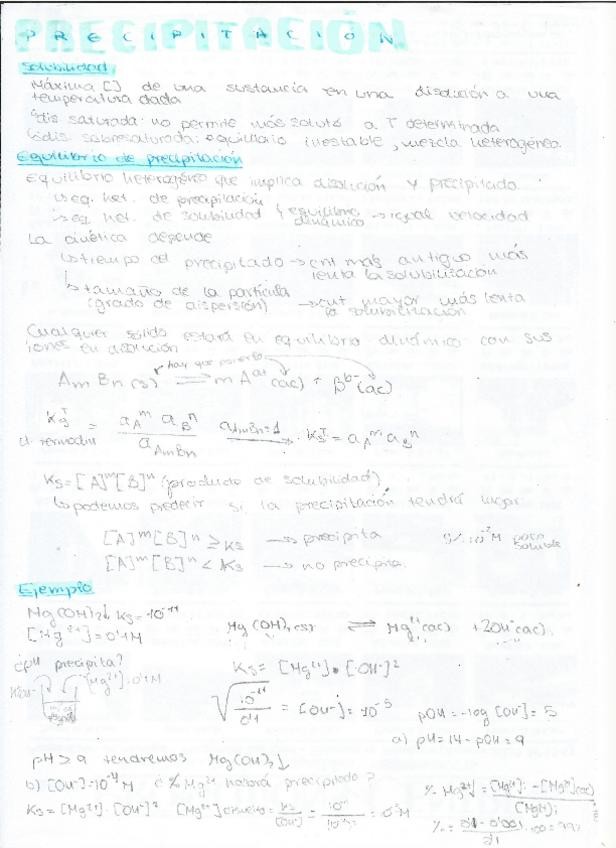 PRECIPITACIÓN
Solubilidad
Máxima [] de una sustancia en una disolución a una
temperatura dada
↳dis saturada: no permite más soluto a T determinada
↳dis sobresaturada: equilibrio inestable, mezcla heterogénea.
Equilibrio de precipitación
Equilibrio heterogéneo que implica disolución y precipitado
↳eq. het. de precipitación
↳eq. het. de solubilidad } equilibrio dinámico → igual velocidad
La cinética depende
↳tiempo del precipitado → cnt más antiguo más
lenta la solubilización
↳tamaño de la partícula
(grado de dispersión) → cnt mayor más lenta
la solubilización
Cualquier sólido estará en equilibrio dinámico con sus
iones en disolución
hay que ponerlo
AmBn(s) ⇌ m A^a+(ac) + B^b-(ac)
Ks^T = aA^m aB^n / aAmBn → aAmBn=1 Ks^T = aA^m aB^n
Ks=[A]^m[B]^n (producto de solubilidad)
↳podemos predecir si la precipitación tendrá lugar
[A]^m[B]^n ≥ Ks → precipita
S< 10^-2 M poco soluble
[A]^m[B]^n < Ks → no precipita.
Ejemplo
Mg(OH)2↓ Ks=10^-11
[Mg^2+]=0'1M
Mg(OH)2(s) ⇌ Mg^2+(ac) + 2OH^-(ac)
¿pH precipita?
Ks= [Mg^2+]·[OH^-]^2
[Mg^2+]=0'1M
√(10^-11 / 0'1) = [OH^-]=10^-5
pOH=-log[OH^-]=5
a) pH=14-pOH=9
pH>9 tendremos Mg(OH)2↓
b) [OH^-]=10^-4 M ¿% Mg^2+ habrá precipitado?
Ks=[Mg^2+]·[OH^-]^2 [Mg^2+]disuelto=